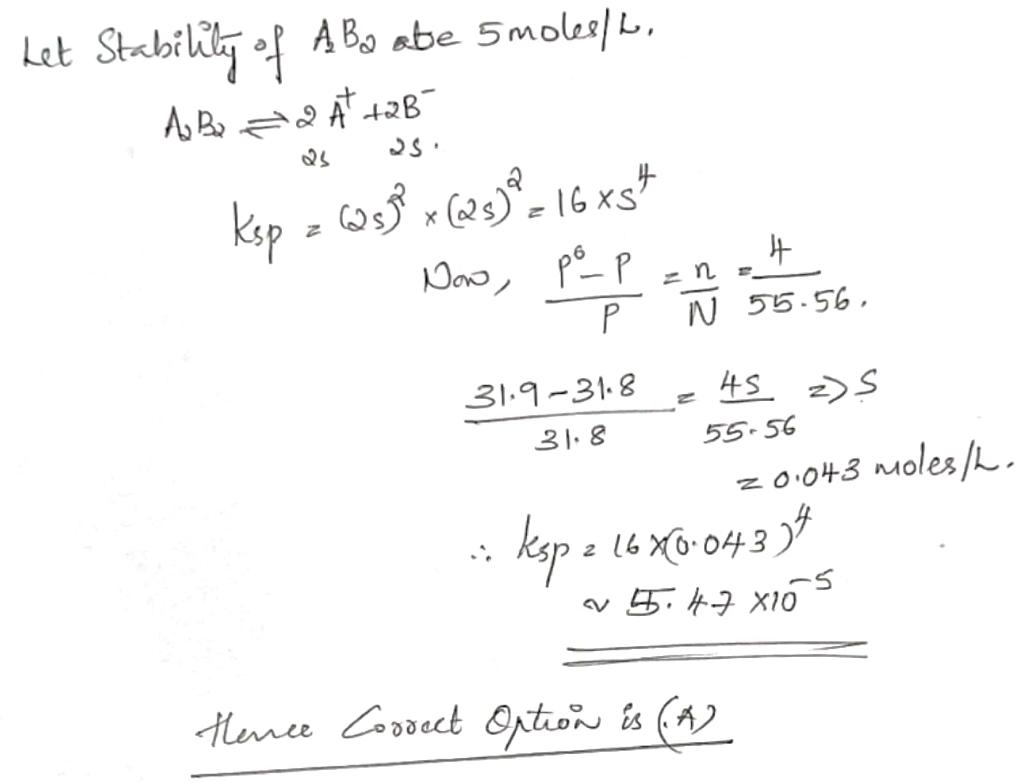 Let Stability of A2B2 be 5 moles/L.
A2B2 ⇌ 2A⁺ + 2B⁻
2s 2s.
Ksp = (2s)² × (2s)² = 16 × s⁴
Now, (P⁰ - P)/P = n/N = 4/55.56.
(31.9 - 31.8)/31.8 = 4S/55.56 => S
= 0.043 moles/L.
∴ Ksp = 16 × (0.043)⁴
~ 5.47 × 10⁻⁵
Hence Correct Option is (A)